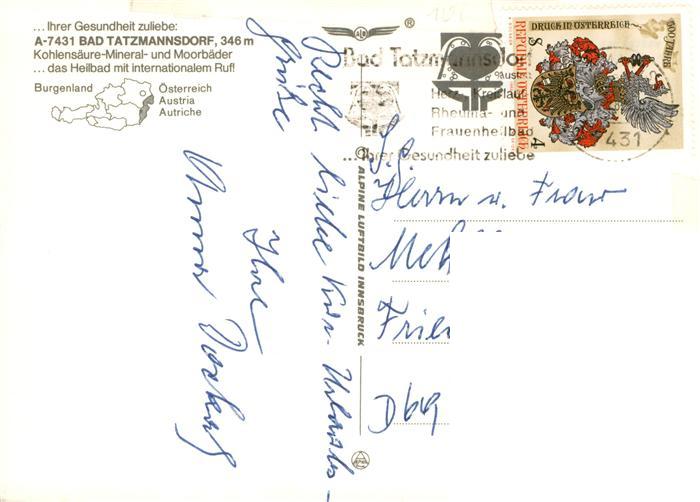 ... Ihrer Gesundheit zuliebe:
A-7431 BAD TATZMANNSDORF, 346 m
Kohlensäure-Mineral- und Moorbäder
... das Heilbad mit internationalem Ruf!
Burgenland
Österreich
Austria
Autriche
Recht liebe Kur-Urlaubs-
grüße
Ihre
ALPINE LUFTBILD INNSBRUCK
®
Bad Tatzmannsdorf
Herz-Kreislauf
Rheuma- und
Frauenheilbad
... Ihrer Gesundheit zuliebe
431
500 JAHRE
DRUCK IN ÖSTERREICH
REPUBLIK ÖSTERREICH
S 4
Herrn u. Frau